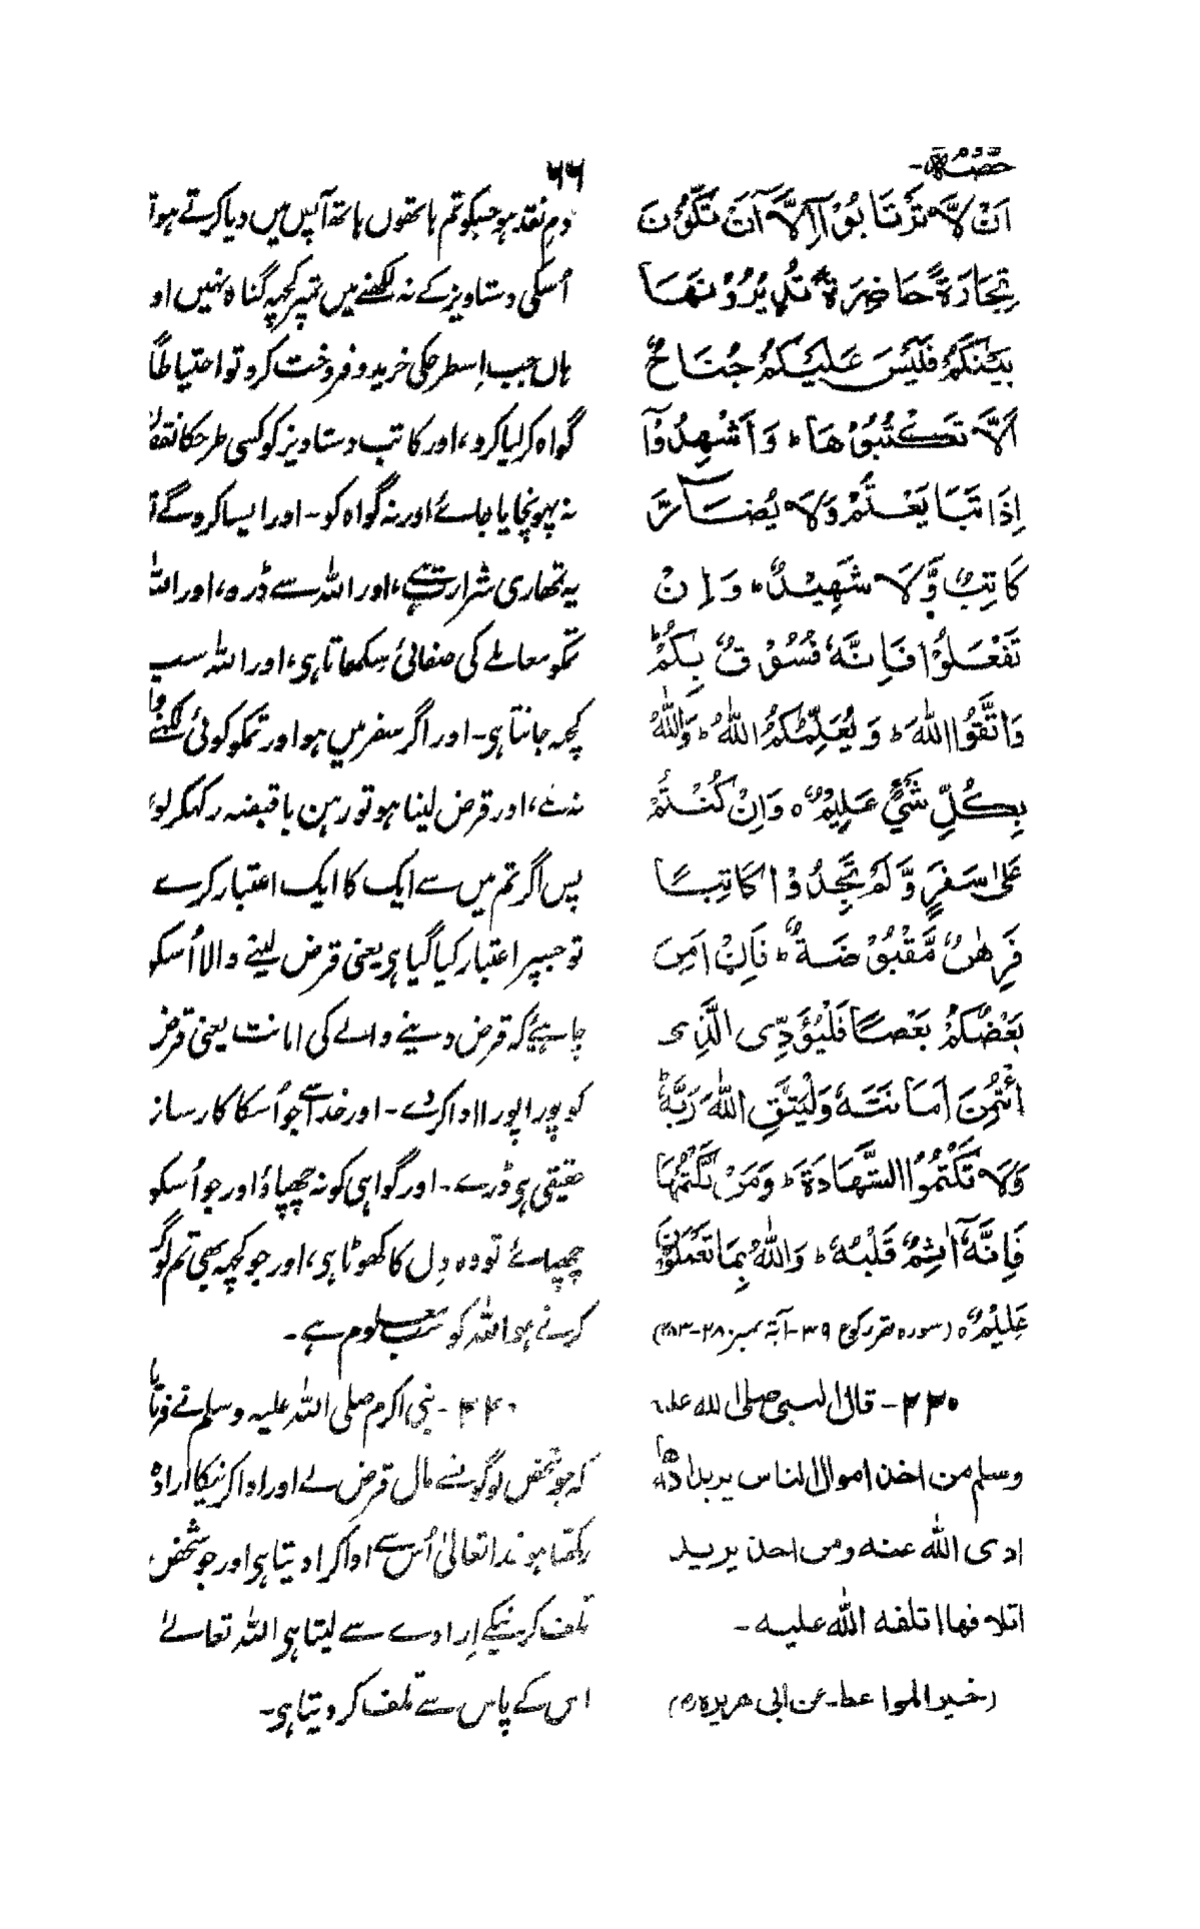 حصہ۵-
۶۶
اَنْ لَّا تَرْتَابُوْٓا اِلَّآ اَنْ تَكُوْنَ
تِجَارَةً حَاضِرَةً تُدِيْرُوْنَهَا
بَيْنَكُمْ فَلَيْسَ عَلَيْكُمْ جُنَاحٌ
اَلَّا تَكْتُبُوْهَا ؕ وَاَشْهِدُوْٓا
اِذَا تَبَايَعْتُمْ وَلَا يُضَآرَّ
كَاتِبٌ وَّلَا شَهِيْدٌ ؕ وَاِنْ
تَفْعَلُوْا فَاِنَّهٗ فُسُوْقٌ بِكُمْ ؕ
وَاتَّقُوا اللّٰهَ ؕ وَيُعَلِّمُكُمُ اللّٰهُ ؕ وَاللّٰهُ
بِكُلِّ شَيْءٍ عَلِيْمٌ ہ وَاِنْ كُنْتُمْ
عَلٰى سَفَرٍ وَّلَمْ تَجِدُوْا كَاتِبًا
فَرِهٰنٌ مَّقْبُوْضَةٌ ؕ فَاِنْ اَمِنَ
بَعْضُكُمْ بَعْضًا فَلْيُؤَدِّى الَّذِى
اؤْتُمِنَ اَمَانَتَهٗ وَلْيَتَّقِ اللّٰهَ رَبَّهٗ ؕ
وَلَا تَكْتُمُوا الشَّهَادَةَ ؕ وَمَنْ يَّكْتُمْهَا
فَاِنَّهٗٓ اٰثِمٌ قَلْبُهٗ ؕ وَاللّٰهُ بِمَا تَعْمَلُوْنَ
عَلِيْمٌ ہ (سورہ بقر رکوع ۳۹- آیۃ نمبر ۲۸۰-۲۸۳)
۲۲۰- قال النبی صلی اللہ علیہ
وسلم من اخذ اموال الناس یرید اداھا
ادی اللہ عنہ ومن اخذ یرید
اتلافھا اتلفہ اللہ علیہ-
(خیر المواعظ- عن ابی ھریرہ رض)
دم نقد ہو جسکو تم ہاتھوں ہاتھ آپس میں دیا کرتے ہو تو
اُسکی دستاویز کے نہ لکھنے میں تمپر کچھ گناہ نہیں او
ہاں جب اِسطرحکی خرید و فروخت کرو تو احتیاطاً
گواہ کر لیا کرو، اور کاتب دستاویز کو کسی طرحکا نقصان
نہ پہونچایا جائے اور نہ گواہ کو- اور ایسا کروگے تو
یہ تمھاری شرارت ہے، اور اللہ سے ڈرو، اور اللہ
تمکو معاملے کی صفائی سکھاتا ہی، اور اللہ سب
کچھ جانتا ہی- اور اگر سفر میں ہو اور تمکو کوئی لکھنے والا
نہ ملے، اور قرض لینا ہو تو رہن باقبضہ رکھکر لو،
پس اگر تم میں سے ایک کا ایک اعتبار کرے
تو جسپر اعتبار کیا گیا ہی یعنی قرض لینے والا اُسکو
چاہیئے کہ قرض دینے والے کی امانت یعنی قرض
کو پورا پورا ادا کردے- اور خدا سے جو اُسکا کارساز
حقیقی ہی ڈرے- اور گواہی کو نہ چھپاؤ اور جو اُسکو
چھپائے تو وہ دل کا کھوٹا ہی، اور جو کچھ بھی تم لوگ
کرتے ہو اللہ کو سب معلوم ہے-
۲۲۰- نبی اکرم صلی اللہ علیہ وسلم نے فرمایا
کہ جو شخص لوگونسے مال قرض لے اور ادا کرنیکا ارادہ
رکھتا ہو خدا تعالیٰ اُس سے ادا کرا دیتا ہی اور جو شخص
تلف کرنیکے اِرادے سے لیتا ہی اللہ تعالےٰ
اس کے پاس سے تلف کر دیتا ہی-